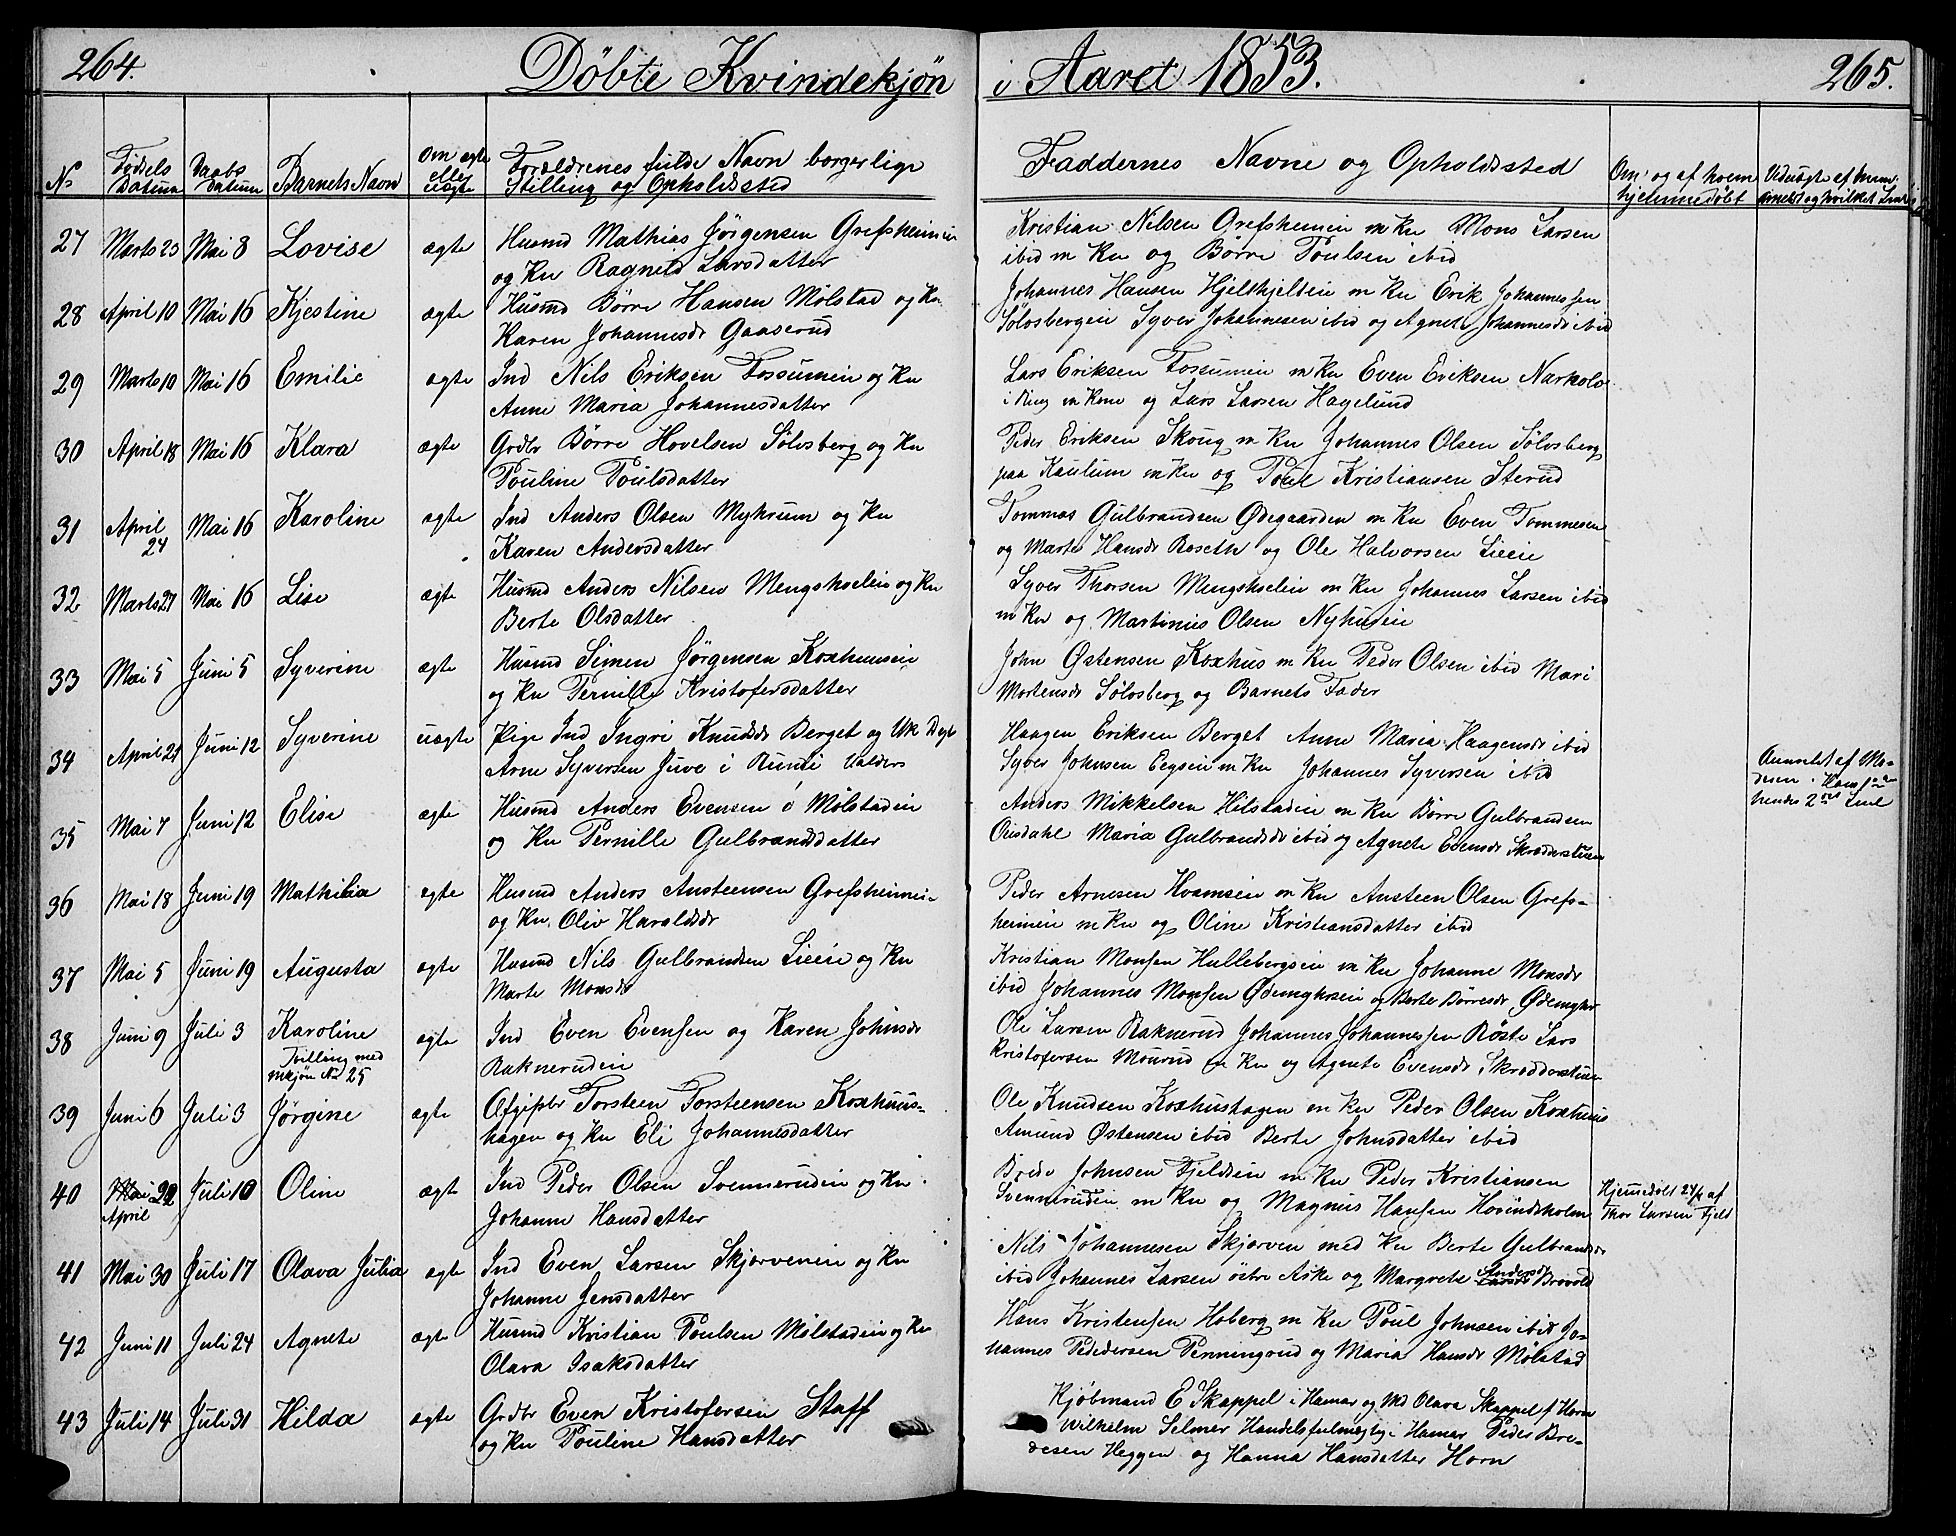 264.
Döbte Kvindekjön i Aaret 1853.
265.
No
Födsels Datum
Daabs Datum
Barnets Navn
Om ægte eller uægte
Forældrenes fulde Navn borgerlige
Stilling og Opholdssted
Faddernes Navne og Opholdssted
Om og af hvem
hjemmedöbt
27 Marts 23 Mai 8 Lovise ægte Husmd Mathias Jörgensen Grefsheimeie
og Kn Ragnild Larsdatter
Kristian Nilsen Grefsheimeie m Kn Mons Larsen
ibid m Kn og Börre Poulsen ibid
28 April 10 Mai 16 Kjestine ægte Husmd Börre Hansen Mölstad og Kn
Karen Johannesdr Gaaserud
Johannes Hansen Hjelthjelteie m Kn Erik Johannessen
Sölvsbergeie Syver Johannesen ibid og Agnete Johannesdr ibid
29 Marts 10 Mai 16 Emilie ægte Ind Nils Eriksen Fossumeie og Kn
Anne Maria Johannesdatter
Lars Eriksen Fossumeie m Kn Even Eriksen
i Ring m Kone og Lars Larsen Hagelund
30 April 18 Mai 16 Klara ægte Grdbr Börre Hovelsen Sölvsberg og Kn
Pouline Poulsdatter
Peder Eriksen Skoug m Kn Johannes Olsen Sölvsberg
paa Kaulum m Kn og Poul Kristiansen Sterud
31 April 24 Mai 16 Karoline ægte Ind Anders Olsen Myhrum og Kn
Karen Andersdatter
Tommas Gulbrandsen Ödegaarden m Kn Even Tommesen
og Marte Hansdr Roseth og Ole Halvorsen Lieeie
32 Marts 27 Mai 16 Lise ægte Husmd Anders Nilsen Mengshoeleie og Kn
Berte Olsdatter
Syver Thorsen Mengshoeleie m Kn Johannes Larsen ibid
m Kn og Martinius Olsen Nyhuseie
33 Mai 5 Juni 5 Syverine ægte Husmd Simen Jörgensen Koxhuuseie
og Kn Pernille Kristofersdatter
John Östensen Koxhus m Kn Peder Olsen ibid Mari
Mortensdr Sölvsberg og Barnets Fader
34 April 21 Juni 12 Syverine uægte Pige Ind Ingri Knudsdr Berget og Uk
Arne Syversen Juve i Valders
Haagen Eriksen Berget Anne Maria Haagensdr ibid
Syver Johnsen Eegeeie m Kn Johannes Syversen ibid
Anmeldt af Mo-
deren
hendes 2det Leie
35 Mai 7 Juni 12 Elise ægte Husmd Anders Evensen Mölstadeie
og Kn Pernille Gulbrandsdatter
Anders Mikkelsen Hilstadeie m Kn Börre Gulbrandsen
Onsdahl Maria Gulbrandsdr ibid og Agnete Evensdr Skredderstuen
36 Mai 18 Juni 19 Mathilia ægte Husmd Anders Ansteensen Grefsheimeie
og Kn Oliv Haraldsdr
Peder Arnesen Hvamseie m Kn Ansteen Olsen Grefs-
heimeie m Kn og Oline Kristiansdatter ibid
37 Mai 5 Juni 19 Augusta ægte Husmd Nils Gulbrandsen Lieeie og Kn
Marte Monsdr
Kristian Monsen Hullebergseie m Kn Johanne Monsdr
ibid Johannes Monsen Ödemyhreie og Berte Börresdr Ödemyhr
38 Juni 9 Juli 3 Karoline
Tvilling med
mkjön No 25 ægte Ind Even Evensen og Karen Johnsdr
Rakneruudeie
Ole Larsen Raknerud Johannes Johannessen Röste Lars
Kristofersen Mourud m Kn og Agnete Evensdr Skredderstuen
39 Juni 6 Juli 3 Jörgine ægte Torsteen Torsteensen Koxhuus-
hagen og Kn Eli Johannesdatter
Ole Knudsen Koxhushagen m Kn Peder Olsen Koxhuus
Amund Östensen ibid Berte Johnsdatter ibid
40 April 22 Juli 10 Oline ægte Ind Peder Olsen Svennerudeie og Kn
Johanne Hansdatter
Brede Johnsen Fjeldseie m Kn Peder Kristiansen
Svennerudeie m Kn og Magnus Hansen Hovindsholm
Hjemmedöbt 24/4 af
Thor Larsen Fjeld
41 Mai 30 Juli 17 Olava Julia ægte Ind Even Larsen Skjerveneie og Kn
Johanne Jensdatter
Nils Johannesen Skjerven med Kn Berte Gulbrandsdr
ibid Johannes Larsen östre Aske og Margrete Andersdr Brovold
42 Juni 11 Juli 24 Agnete ægte Husmd Kristian Poulsen Mölstadeie og Kn
Olava Isaksdatter
Hans Kristensen Hoberg m Kn Poul Johnsen ibid Jo-
hannes Pedersen Penningrud og Maria Hansdr Mölstad
43 Juli 14 Juli 31 Hilda ægte Grdbr Even Kristofersen Staff
og Kn Pouline Hansdatter
Kjöbmand E Skappel i Hamar og Md Olava Skappel f Horn
Wilhelm Selmer Handelsfulmegtig i Hamar Peder Bre-
desen Heggen og Hanna Hansdatter Horn